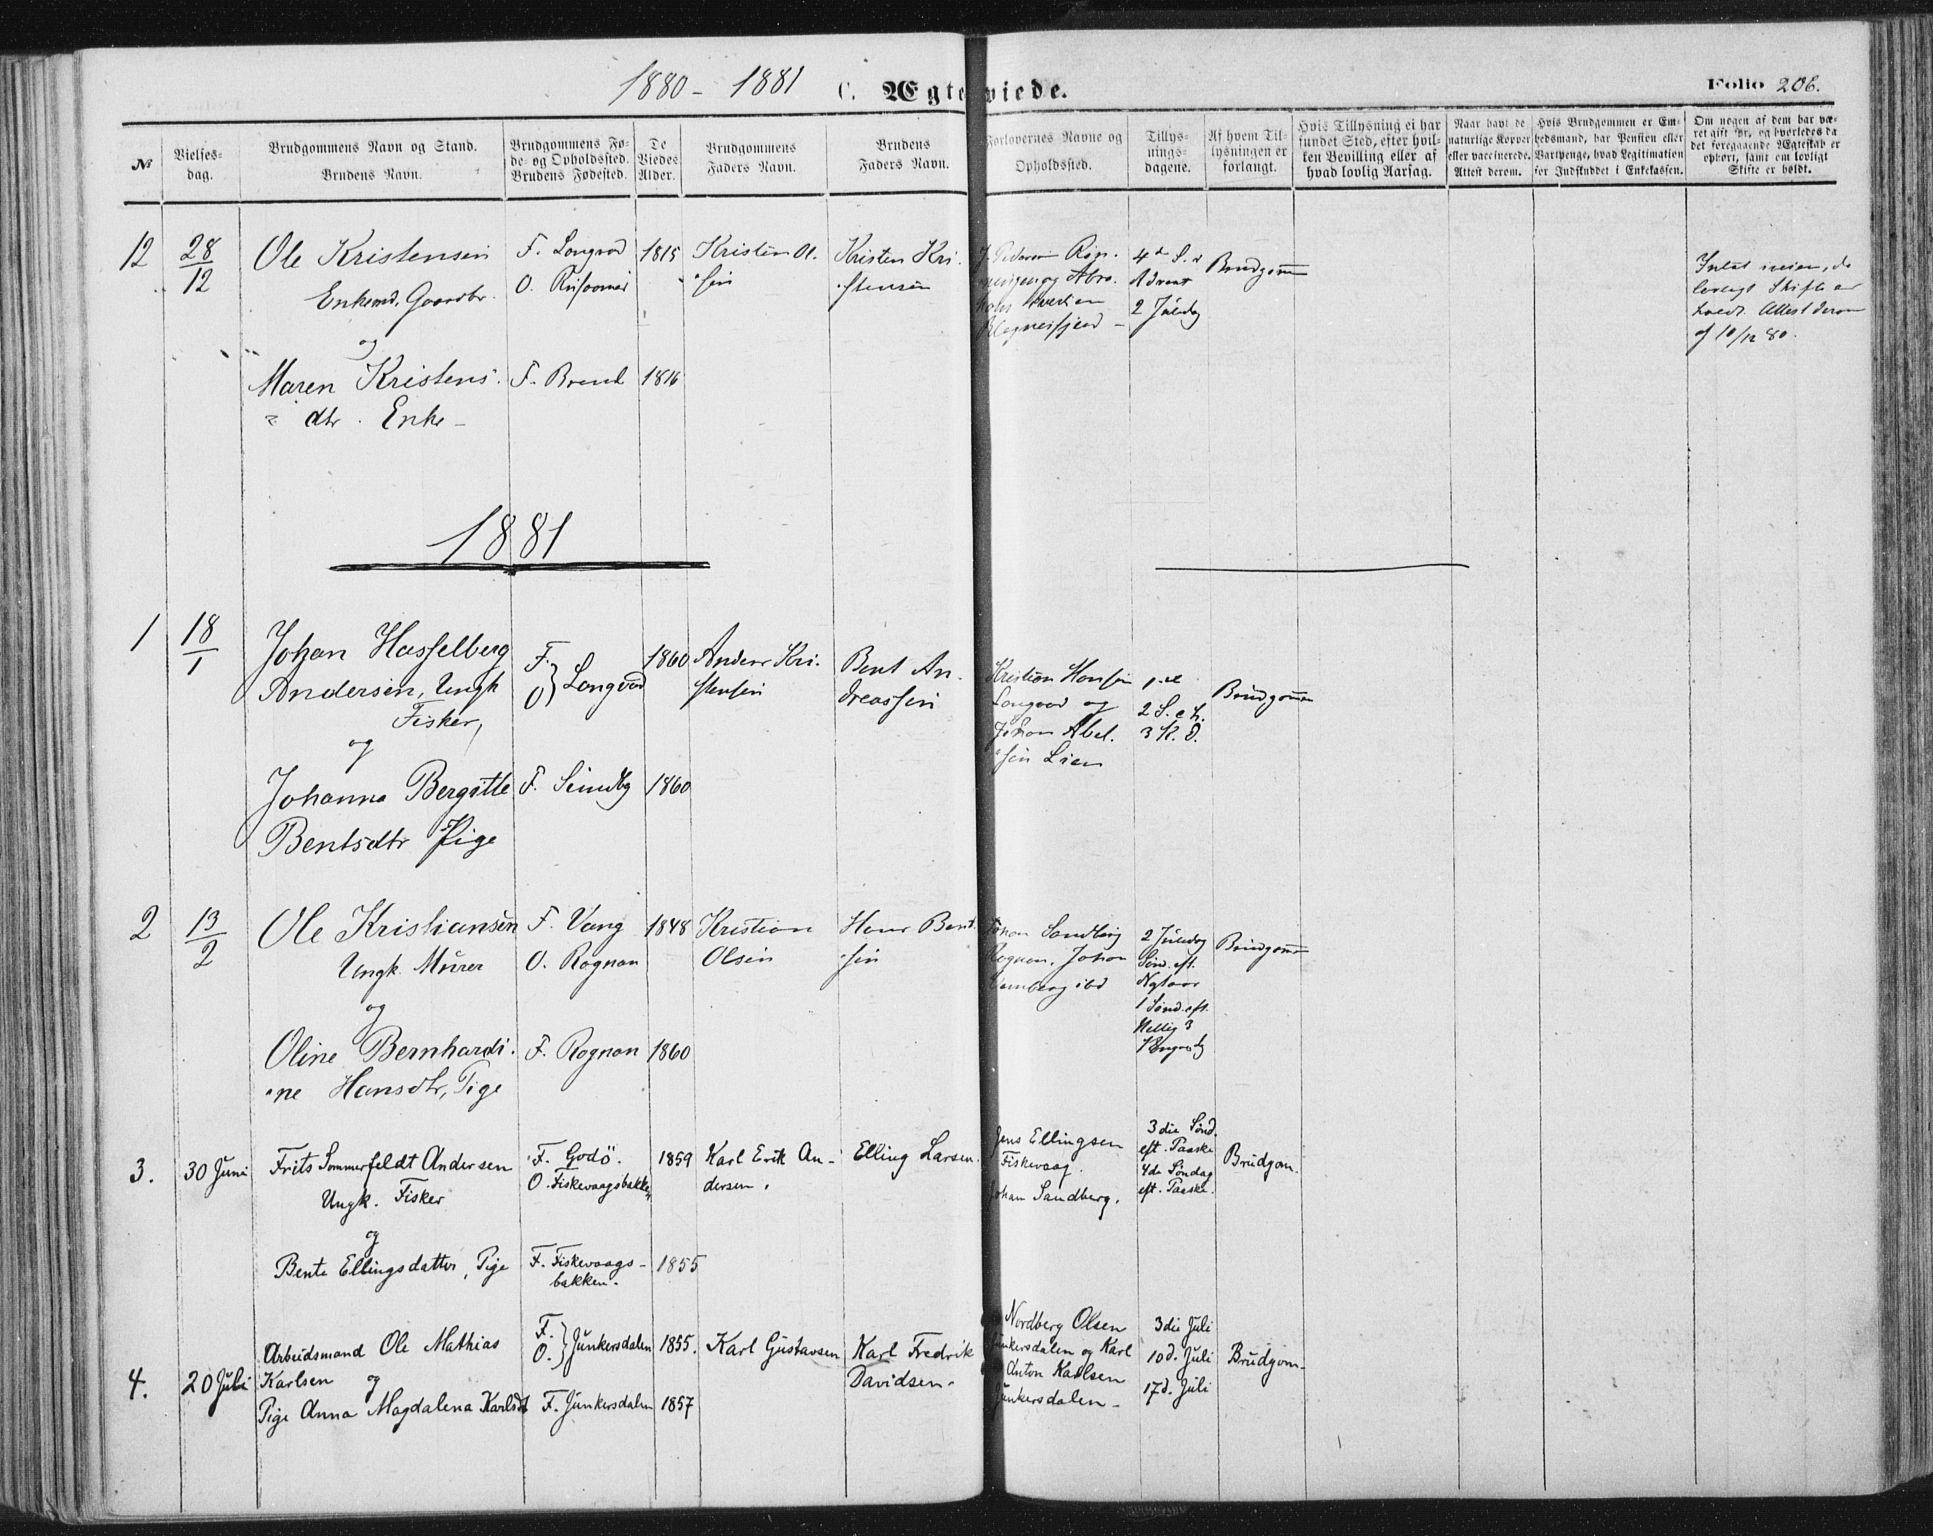 1880 - 1881 C. Ægteviede. Folio 206.
No
Vielses-
dag.
Brudgommens Navn og Stand.
Brudens Navn.
Brudgommens Fø-
de- og Opholdssted.
Brudens Fødested.
De
Viedes
Alder.
Brudgommens
Faders Navn.
Brudens
Faders Navn.
Forlovernes Navne og
Opholdssted.
Tillys-
nings-
dagene.
Af hvem Til-
lysningen er
forlangt.
Hvis Tillysning ei har
fundet Sted, efter hvil-
ken Bevilling eller af
hvad lovlig Aarsag.
Naar havt de
naturlige Kopper
eller vaccinerede.
Attest derom.
Hvis Brudgommen er Em-
bedsmand, har Pension eller
Vartpenge, hvad Legitimation
for Indskuddet i Enkekassen.
Om nogen af dem har væ-
ret gift før, og hvorledes da
det foregaaende Ægteskab er
ophørt, samt om lovligt
Skifte er holdt.
12 28/12
Ole Kristensen
Enkemd. Gaardbr.
og
Maren Kristens
dtr. Enke -
F. Longvad
O.
F. Brend
1815
1816
Kristen Ol.
sen
Kristen Kri.
stensen
4de S. i
Advent
2 Juledag
Brudgom
Intet i veien, da
lovligt Skifte er
holdt. Attest derom
af 10/12 80.
1881
1 18/1
Johan Hasselberg
Andersen, Ungk
Fisker,
og
Johanna Bergitte
Bentsdtr Pige
F.
O } Longvad
F. Sundby
1860
1860
Anders Kri.
stensen
Bent An.
dreassen
Kristian Hansen
Longvad og
Johan Abel.
sen Lien
1 ste
2 S. e h.
3 K. D.
Brudgom
2 13/2
Ole Kristiansen
Ungk. Murer
og
Oline Bernhardi.
ne Hansdtr, Pige
F. Vang
O. Rognan
F. Rognan
1848
1860
Kristian
Olsen
Hans Bent.
sen
Johan Sandberg
Rognan, Johan
ibd
2 Juledag
Sønd. eft.
Nytaar
1 Sønd. eft.
Hellig 3
Kongersdg
Brudgom
3. 30 Juni
Frits Sommerfeldt Andersen
Ungk. Fisker
og
Bente Ellingsdatter, Pige
F. Godö.
O. Fiskevaagsbakken
F. Fiskevaags-
bakken.
1859
1855
Karl Erik An-
dersen.
Elling Larsen.
Jens Ellingsen
Fiskevaag.
Johan Sandberg.
3die Sønd.
eft. Paaske
4de Søndag
eft. Paaske.
Brudgom.
4. 20 Juli
Arbeidsmand Ole Mathias
Karlsen og
Pige Anna Magdalena Karlsdt
F.
O. } Junkersdalen
F. Junkersdalen
1855.
1857
Karl Gustavsen
Karl Fredrik
Davidsen.
Nordberg Olsen
Junkersdalen og Karl
Anton Karlsen
Junkersdalen.
3die Juli
10d. Juli
17d. Juli
Brudgom.